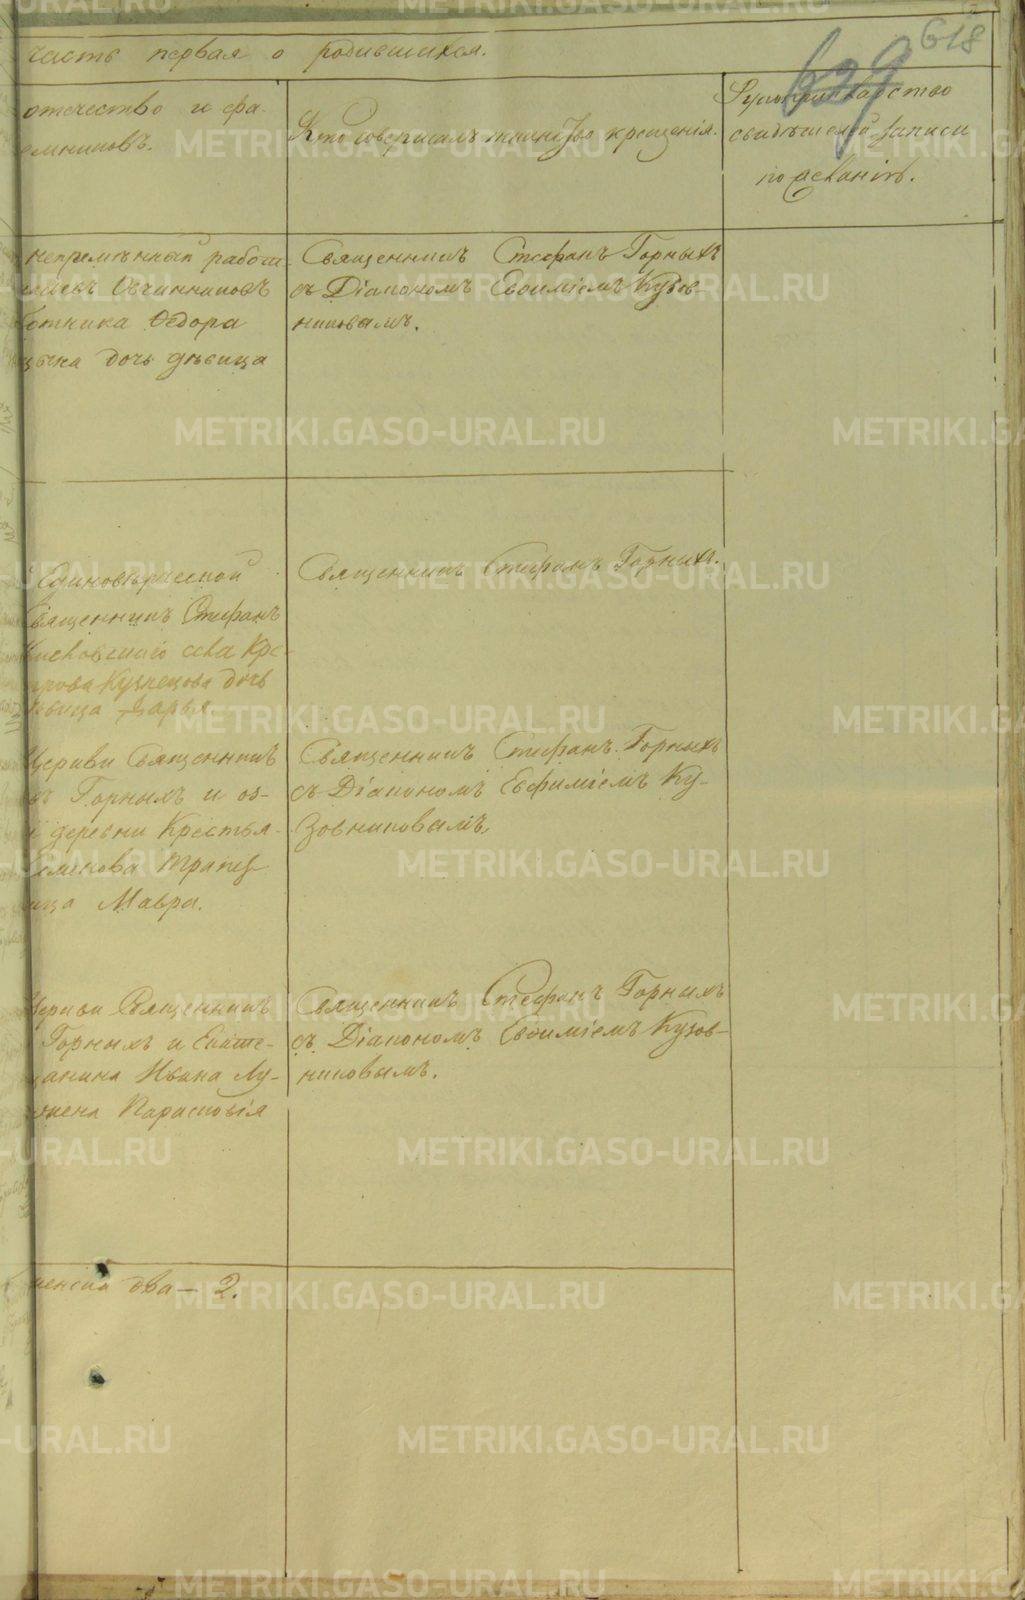 618
629
часть первая о родившихся.
отчество и фа-
емниковъ.
Кто совершалъ таинство крещенія.
Рукоприкладство
свидѣтелей записи
по желанію.
непремѣнный работ-
Овчинниковъ
ботника Ѳедора
дочь дѣвица
Священникъ Стефанъ Горныхъ
съ Діакономъ Евѳиміемъ Кузов-
никовымъ.
Единовѣрческой
Священникъ Стефанъ
села Кре-
Кузнецова дочь
дѣвица Дарья
Священникъ Стефанъ Горныхъ.
Церкви Священникъ
Горныхъ и оз-
деревни Крестья-
Семенова Трапез
ица Мавра.
Священникъ Стефанъ Горныхъ
съ Діакономъ Евфиміемъ Ку-
зовниковымъ.
Церкви Священникъ
Горныхъ и Екате-
щанина Ивана Лу-
жена Парасковія
Священникъ Стефанъ Горныхъ
съ Діакономъ Евѳиміемъ Кузов-
никовымъ.
женска два — 2.
METRIKI.GASO-URAL.RU